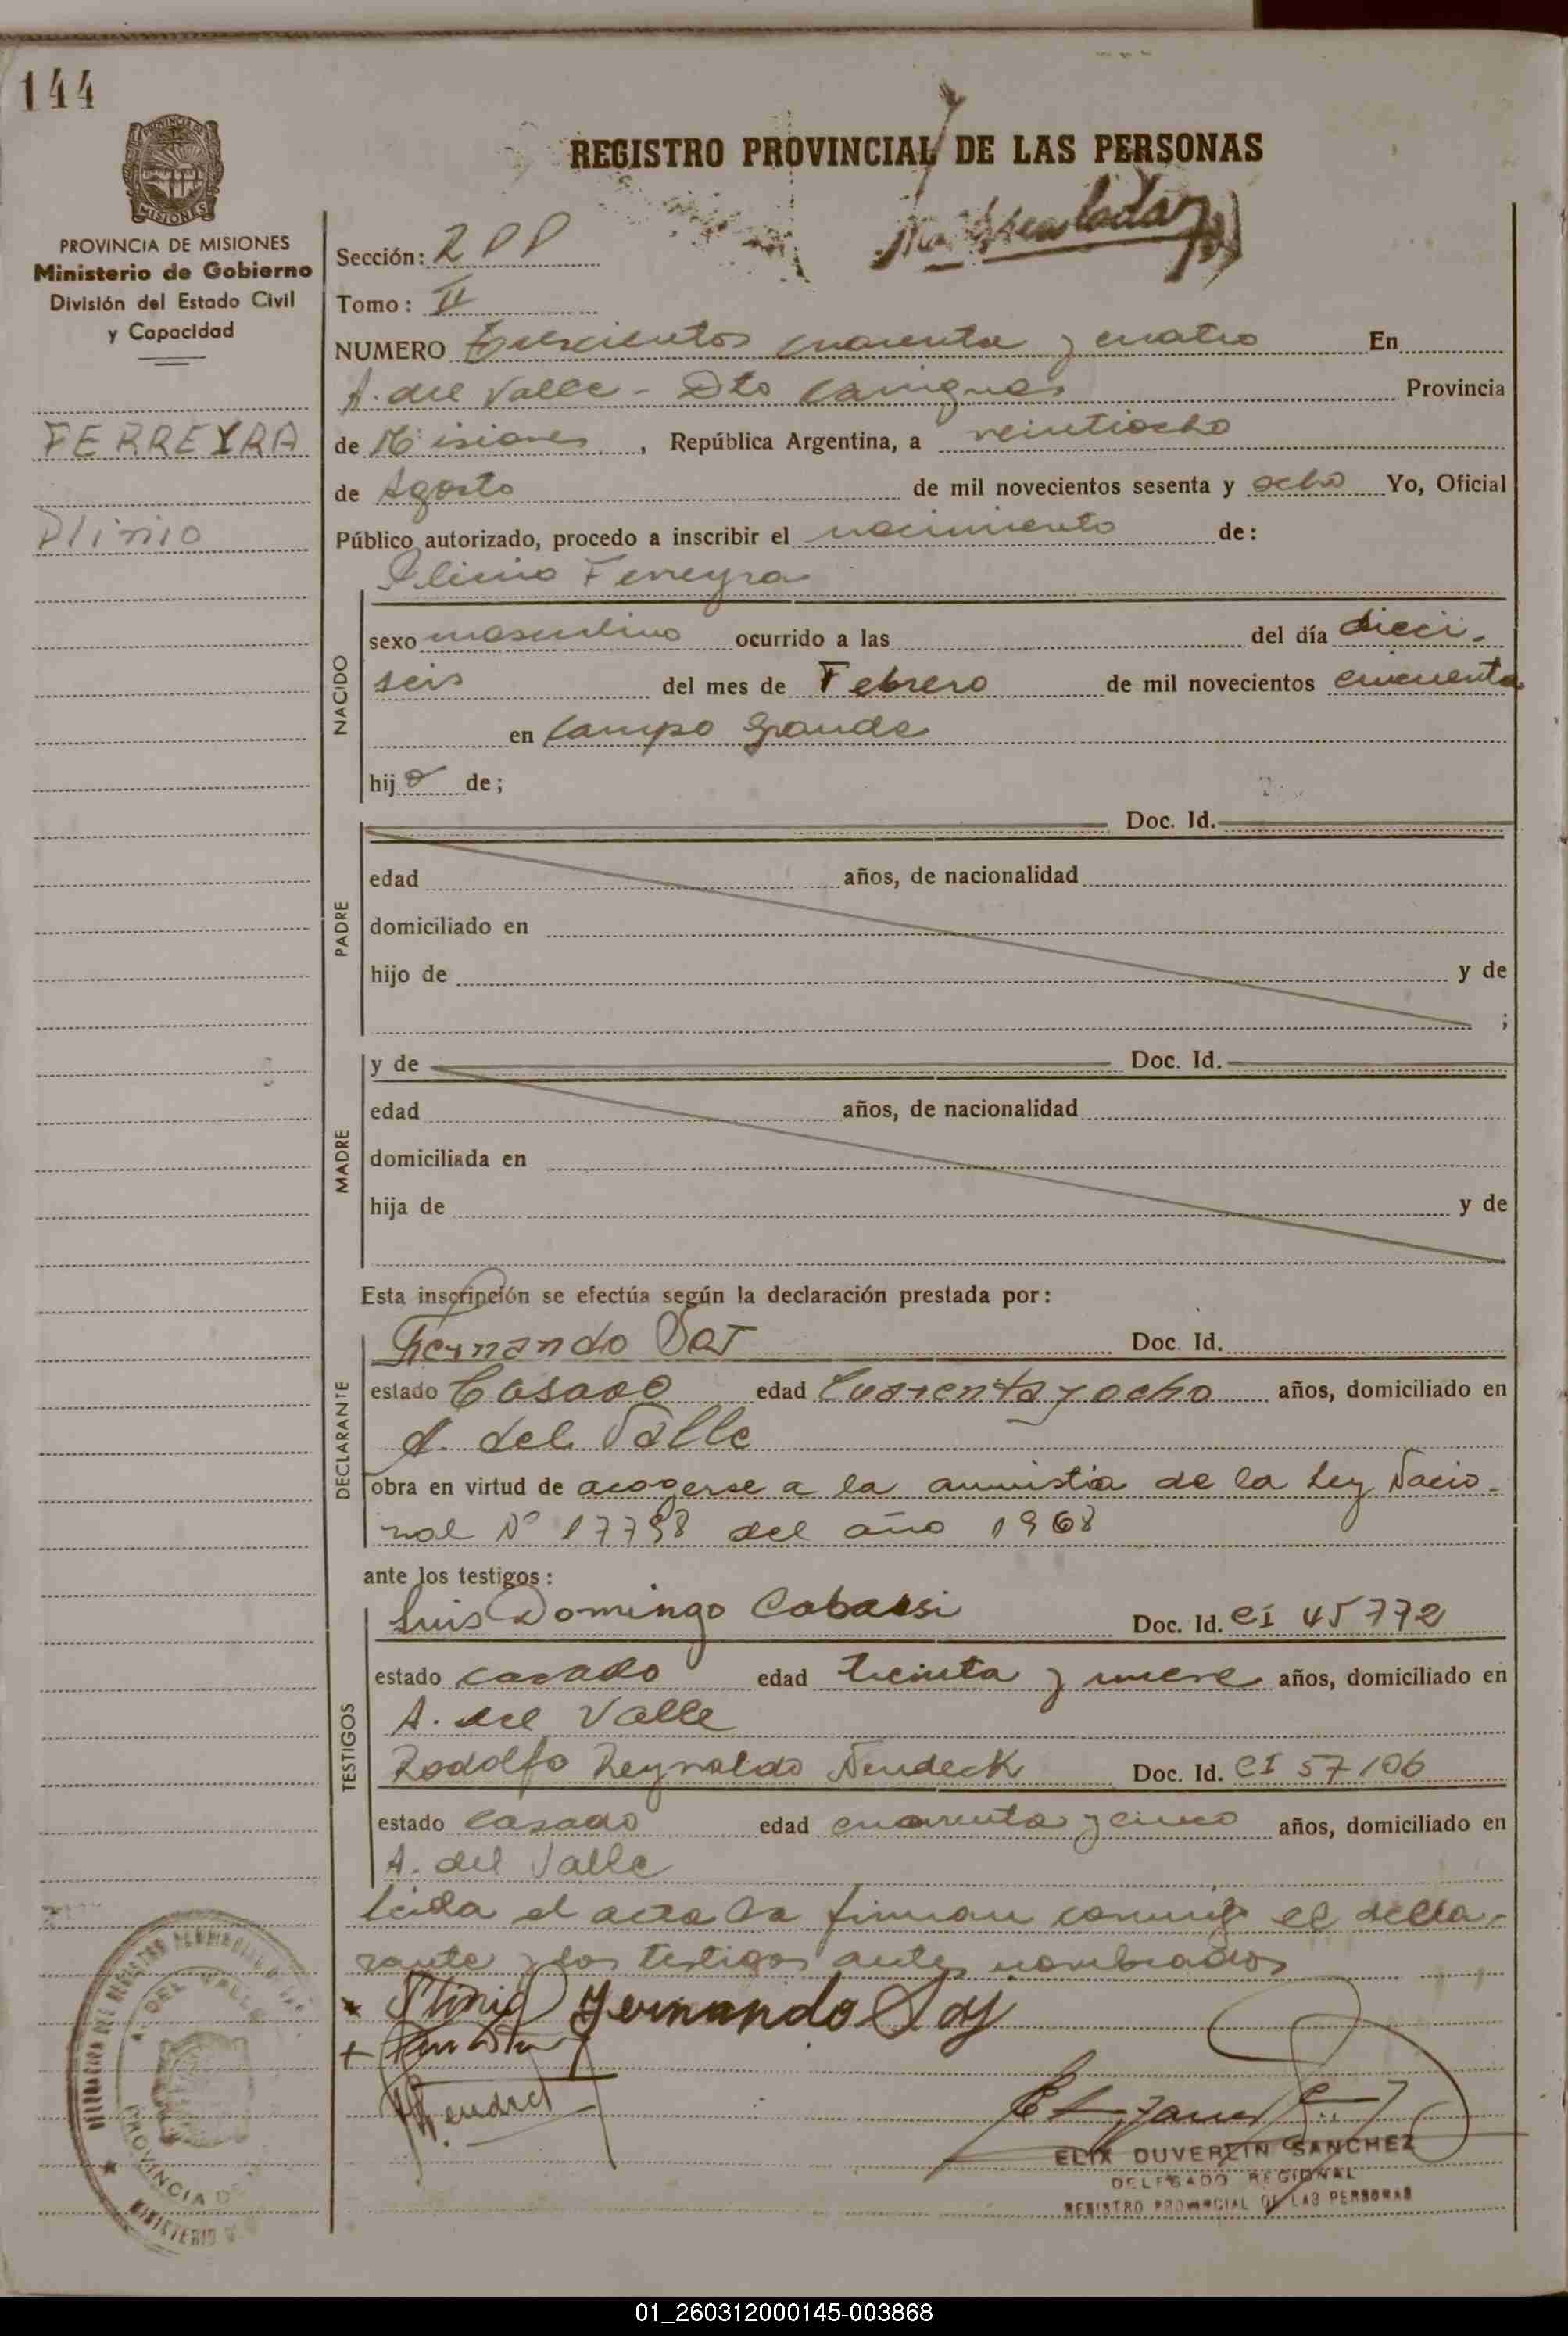 144
PROVINCIA DE
MISIONES
PROVINCIA DE MISIONES
Ministerio de Gobierno
División del Estado Civil
y Capacidad
FERREYRA
Plinio
REGISTRO PROVINCIAL DE LAS PERSONAS
Sección: 2
Tomo: II
NUMERO Trescientos cuarenta y cuatro En
A. del Valle - Dto Cainguas Provincia
de Misiones, República Argentina, a veintiocho
de Agosto de mil novecientos sesenta y ocho Yo, Oficial
Público autorizado, procedo a inscribir el nacimiento de:
Plinio Ferreyra
NACIDO
sexo masculino ocurrido a las del día dieci-
seis del mes de Febrero de mil novecientos cincuenta
en Campo Grande
hijo de;
PADRE
Doc. Id.
edad años, de nacionalidad
domiciliado en
hijo de y de
;
MADRE
y de Doc. Id.
edad años, de nacionalidad
domiciliada en
hija de y de
Esta inscripción se efectúa según la declaración prestada por:
DECLARANTE
Fernando Doc. Id.
estado Casado edad Cuarenta y ocho años, domiciliado en
A. del Valle
obra en virtud de acogerse a la amnistia de la Ley Nacio-
nal Nº 17798 del año 1968
ante los testigos:
TESTIGOS
Luis Domingo Cabassi Doc. Id. CI 45772
estado casado edad treinta y nueve años, domiciliado en
A. del Valle
Rodolfo Reynaldo Neudeck Doc. Id. CI 57106
estado casado edad cuarenta y cinco años, domiciliado en
A. del Valle
leida el acta la firman conmigo el decla-
rante y los testigos antes nombrados
Plinio Fernando
ELIX DUVERLIN SANCHEZ
DELEGADO REGIONAL
REGISTRO PROVINCIAL DE LAS PERSONAS
A. DEL VALLE
PROVINCIA DE
MINISTERIO
01_260312000145-003868